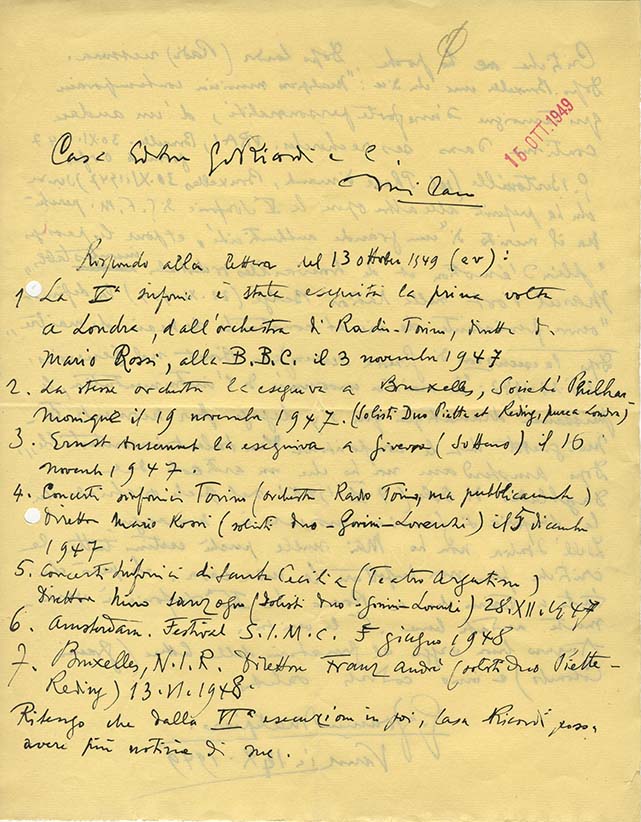 15 OTT. 1949
Casa Editrice G. Ricordi e C.
Milano
Rispondo alla lettera del 13 ottobre 1949 (av):
1. La Iª sinfonia è stata eseguita la prima volta
a Londra, dall'orchestra di Radio-Torino, diretta da
Mario Rossi, alla B.B.C. il 3 novembre 1947
2. La stessa orchestra la eseguiva a Bruxelles, Société Philhar-
monique il 19 novembre 1947. (Solisti Duo Piette et Reding, pure a Londra)
3. Ernst Ansermet la eseguiva a Ginevra (Sottens) il 16
novembre 1947.
4. Concerti sinfonici Torino (orchestra Radio Torino, ma pubblicamente)
Direttore Mario Rossi (solisti duo-Gorini-Lorenzi) il 5 dicembre
1947
5. Concerti sinfonici di Santa Cecilia (Teatro Argentina)
Direttore Nino Sanzogno (Solisti duo-Gorini-Lorenzi) 28.XII.1947
6. Amsterdam. Festival S.I.M.C. 5 giugno 1948
7. Bruxelles, N.I.R. Direttore Franz André (solisti duo Piette-
Reding) 13.VI.1948.
Ritengo che dalla VIª esecuzione in poi, Casa Ricordi possa
avere più notizie di me.